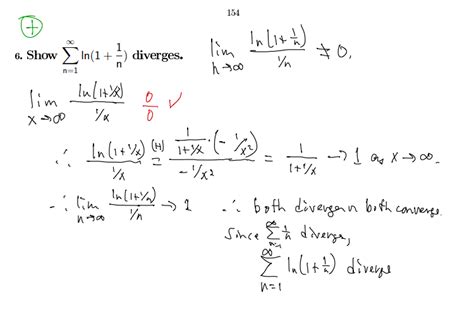 154
+
6. Show ∑_{n=1}^{∞} ln(1 + 1/n) diverges.
lim_{n→∞} ln(1+1/n) / (1/n) ≠ 0,
lim_{x→∞} ln(1+1/x) / (1/x) 0/0 ✓
∴ ln(1+1/x) / (1/x) (H)= (1/(1+1/x) · (-1/x²)) / (-1/x²) = 1/(1+1/x) → 1 as x→∞.
∴ lim_{n→∞} ln(1+1/n) / (1/n) → 1
∴ both diverge or both converge.
Since ∑_{n=1}^{∞} 1/n diverge,
∑_{n=1}^{∞} ln(1+1/n) diverge